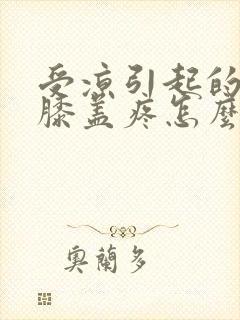 受凉引起的
膝盖疼怎麽
奥蘭多